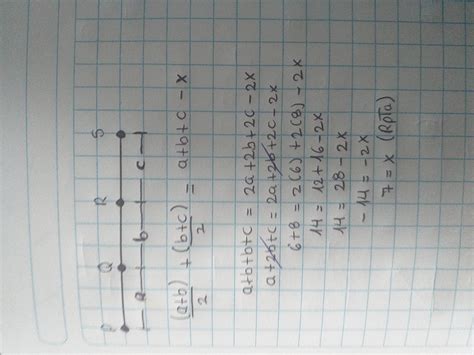 P Q R S
a b c
(a+b)/2 + (b+c)/2 = a+b+c - x
a+b+b+c = 2a+2b+2c-2x
a+2b+c = 2a+2b+2c-2x
6+8 = 2(6)+2(8)-2x
14 = 12+16-2x
14 = 28-2x
-14 = -2x
7 = x (Rpta)